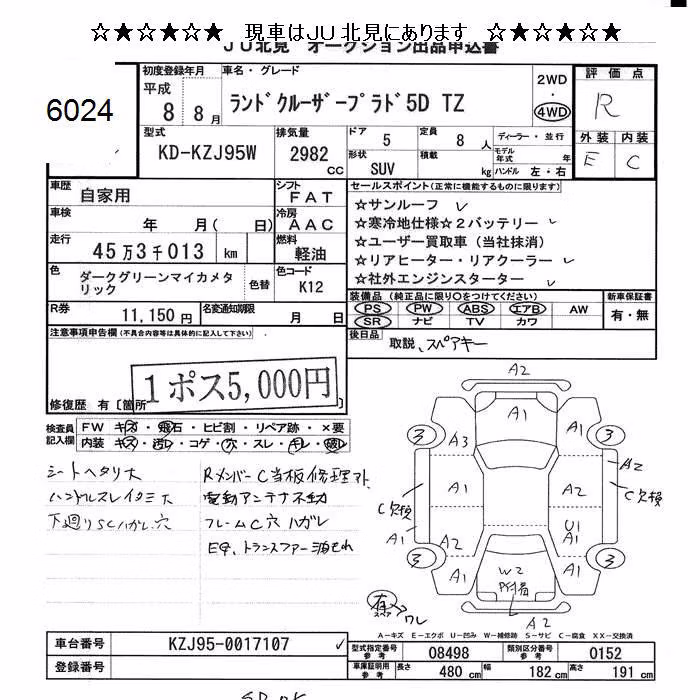 ☆★☆★☆★☆ 現車はJU北見にあります ☆★☆★☆★☆
JU北見 オークション出品申込書
6024
初度登録年月 車名・グレード 2WD・4WD 評価点
平成 8 8月 ランドクルーザープラド5D TZ R
型式 排気量 ドア 5 定員 8人 ディーラー・並行 外装 内装
KD-KZJ95W 2982cc 形状 SUV 積載 kg モデル年式 年 ハンドル 左・右 E C
車歴 自家用 シフト FAT セールスポイント(正常に機能するものに限ります)
車検 年 月( 日) 冷房 AAC ☆サンルーフ
☆寒冷地仕様☆2バッテリー
走行 45万3千013km 燃料 軽油 ☆ユーザー買取車(当社抹消)
☆リアヒーター・リアクーラー
色 ダークグリーンマイカメタリック 色替 色コード K12 ☆社外エンジンスターター
R券 11,150円 名変通知期限 月 日 装備品(純正品に限り○をつけてください) 新車保証書
PS PW ABS エアB AW 有・無
SR ナビ TV カワ
注意事項申告欄(不具合内容等は具体的に記入して下さい) 後日品 取説、スペアキー
1ポス5,000円
修復歴 有〔箇所
検査員記入欄 FW キズ・飛石・ヒビ割・リペア跡・×要
内装 キズ・汚レ・コゲ・穴・スレ・キレ・破レ
シートヘタリ大 Rメンバー C当板修理アト
ハンドルスレイタミ大 電動アンテナ不動
下廻りSCハガレ穴 フレームC穴ハガレ
E/G、トランスファー油もれ
A2
A1
3 A3 A1 3
A1 A2 A2
C欠損 C欠損
A1 A2 U1 A1
3 A1 W2 A1 3
有 スペア ワレ A2
A－キズ E－エクボ U－凹み W－補修跡 S－サビ C－腐食 XX－交換済
車台番号 KZJ95-0017107 型式指定番号 参考 08498 類別区分番号 参考 0152
登録番号 車庫証明用 参考 長さ 480cm 幅 182cm 高さ 191cm